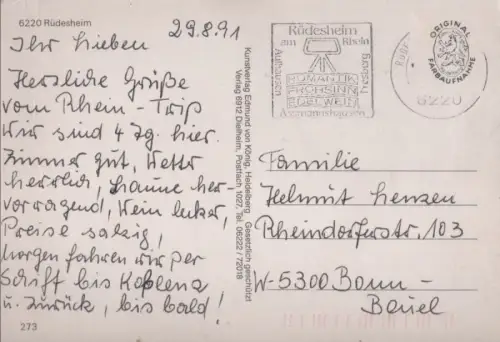 6220 Rüdesheim
29.8.91
Ihr Lieben
Herzliche Grüße
vom Rhein-Trip
Wir sind 4 Tg. hier.
Zimmer gut, Wetter
herrlich, Laune her
vorragend, Wein lecker,
Preise salzig,
morgen fahren wir per
Schiff bis Koblenz
u. zurück, bis bald!
273
Kunstverlag Edmund von König, Heidelberg Gesetzlich geschützt
Verlag 6912 Dielheim, Postfach 1027, Tel. 06222 / 72018
Rüdesheim
am Rhein
Aulhausen
Presberg
ROMANTIK
FROHSINN
EDELWEIN
Assmannshausen
6220
ORIGINAL
FARBAUFNAHME
Familie
Helmut Henzen
Rheindorferstr. 103
W-5300 Bonn-
Beuel